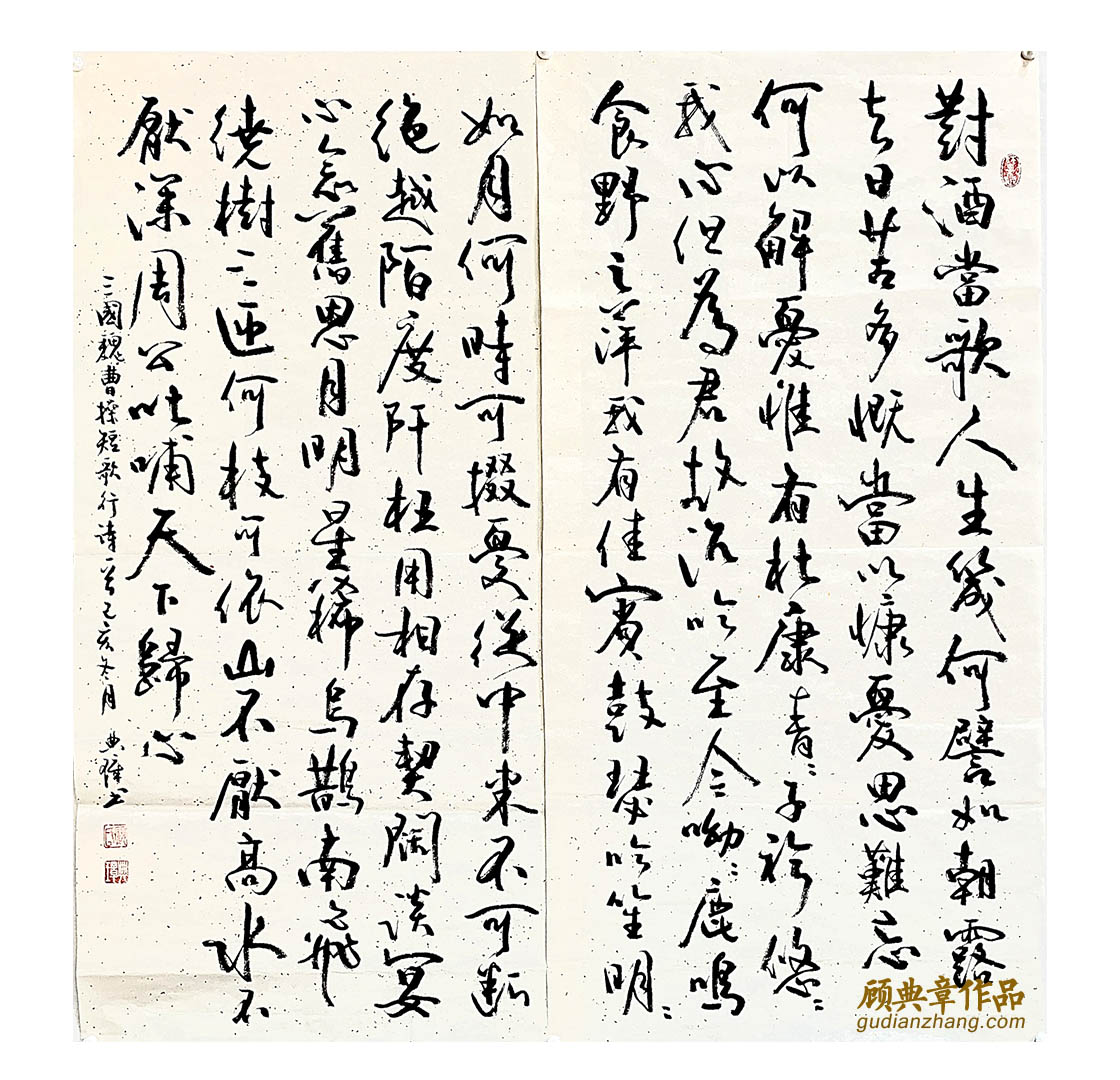 對酒當歌人生幾何譬如朝露
去日苦多慨當以慷憂思難忘
何以解憂惟有杜康青〻子衿悠〻
我心但為君故沉吟至今呦〻鹿鳴
食野之萍我有佳賓鼓瑟吹笙明〻
如月何時可掇憂從中來不可斷
絕越陌度阡枉用相存契闊談宴
心念舊恩月明星稀烏鵲南飛
繞樹三匝何枝可依山不厭高水不
厭深周公吐哺天下歸心
三國魏曹操短歌行詩一首己亥冬月 典璋书
顾典章作品
gudianzhang.com